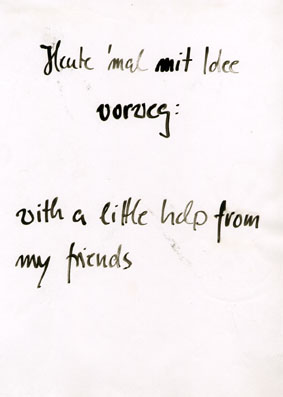 Heute 'mal mit Idee
vorweg:
with a little help from
my friends